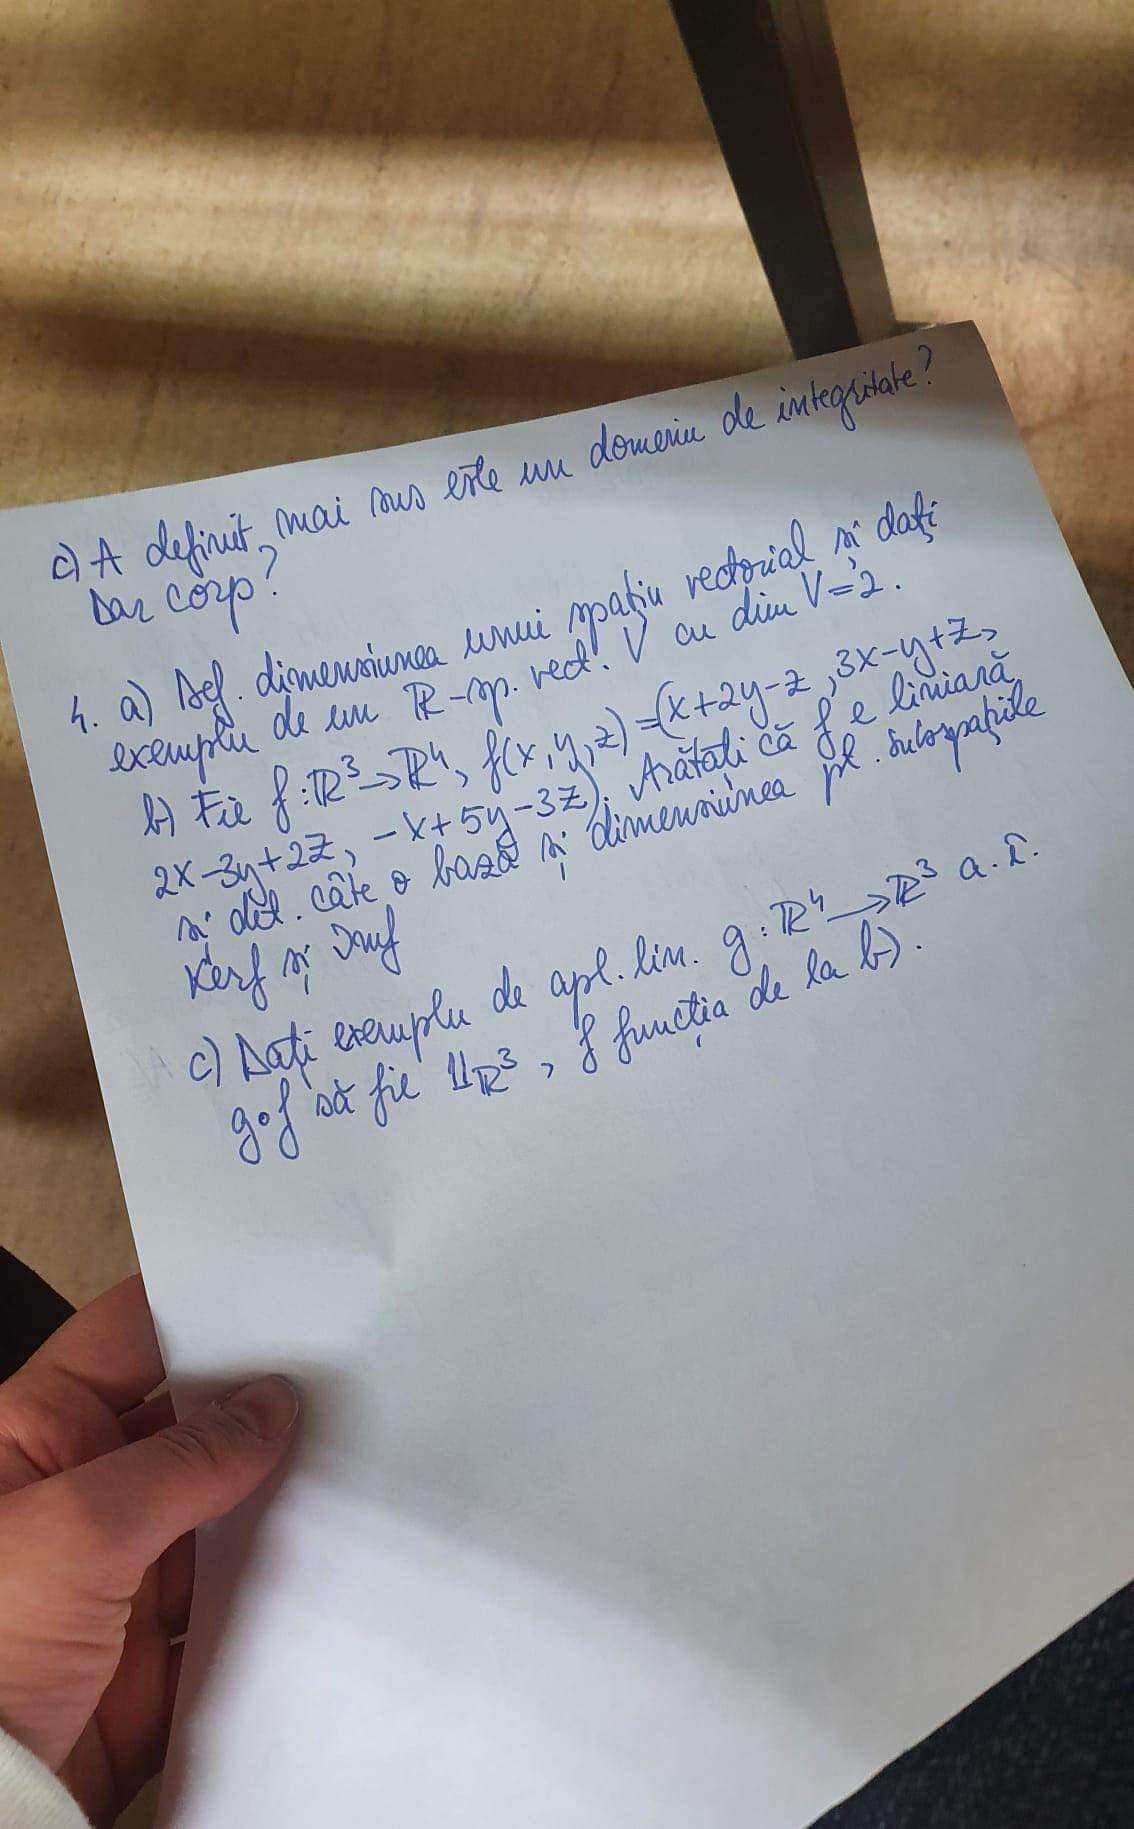 c) A definit mai sus este un domeniu de integritate?
Dar corp?
4. a) Def. dimensiunea unui spațiu vectorial și dați
exemplu de un ℝ-sp. vect. V cu dim V=2.
b) Fie f:ℝ³→ℝ⁴, f(x,y,z)=(x+2y-z,3x-y+z,
2x-3y+2z, -x+5y-3z). Arătați că f e liniară
și det. câte o bază și dimensiunea pt. subspațiile
Kerf și Imf
c) Dați exemplu de apl. lin. g:ℝ⁴→ℝ³ a.î.
g∘f să fie 1_ℝ³, f funcția de la b).